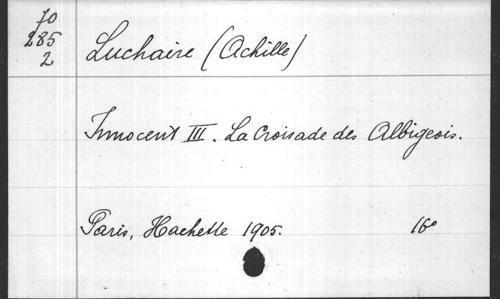 70
285
2
Luchaire (Achille)
Innocent III. La Croisade des Albigeois.
Paris, Hachette 1905. 16°